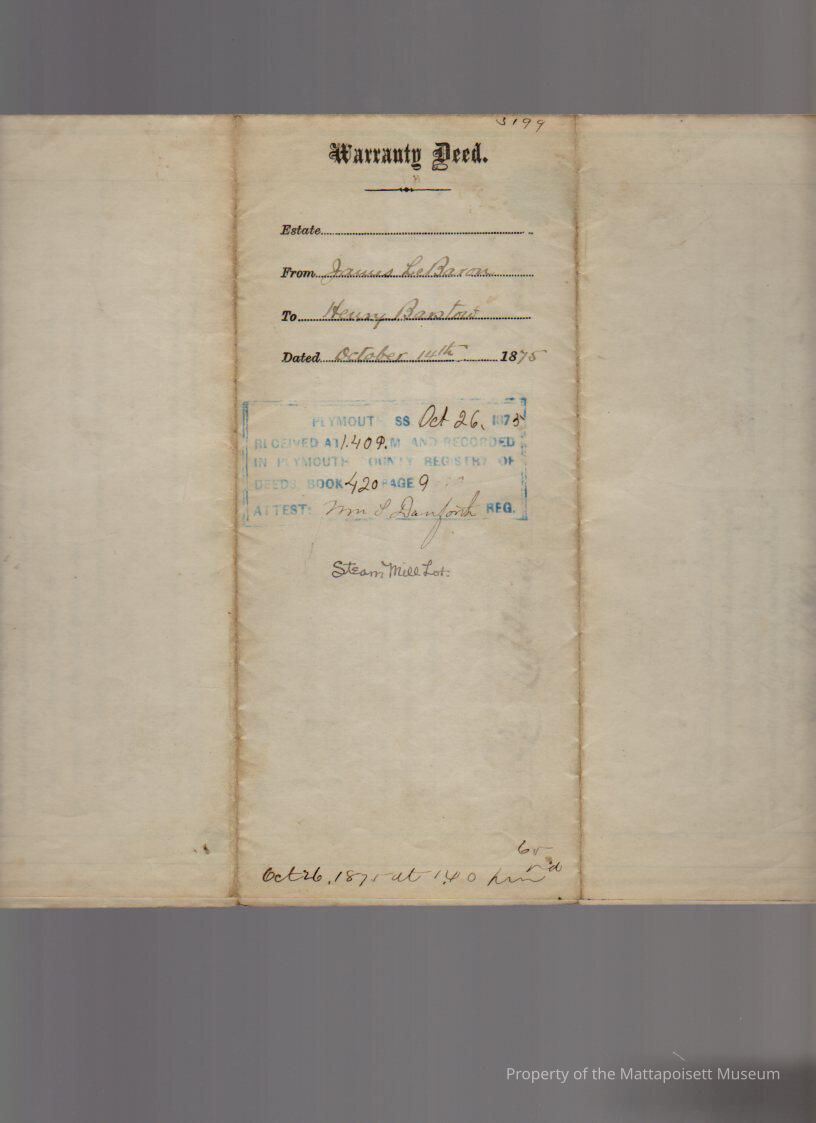 5199
Warranty Deed.
Estate
From James LeBaron
To Henry Barstow
Dated October 14th 1875
PLYMOUTH SS Oct 26, 1875
RECEIVED AT 1.40 P.M AND RECORDED
IN PLYMOUTH COUNTY REGISTRY OF
DEEDS, BOOK 420 PAGE 9
ATTEST: Wm S. Danforth REG.
Steam Mill Lot.
Oct 26, 1875 at 1.40 pm
Property of the Mattapoisett Museum